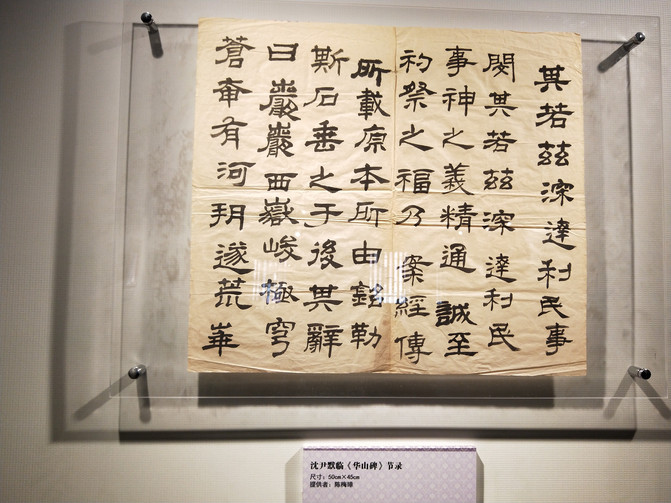 其若兹深達利民事
閔其若兹深達利民
事神之義精通誠至
礿祭之福乃案經傳
所載原本所由銘勒
斯石垂之于後其辭
曰巖巖西嶽峻極穹
蒼奄有河朔遂荒崋
沈尹默临《华山碑》节录
尺寸：50cm×45cm
提供者：陈梅